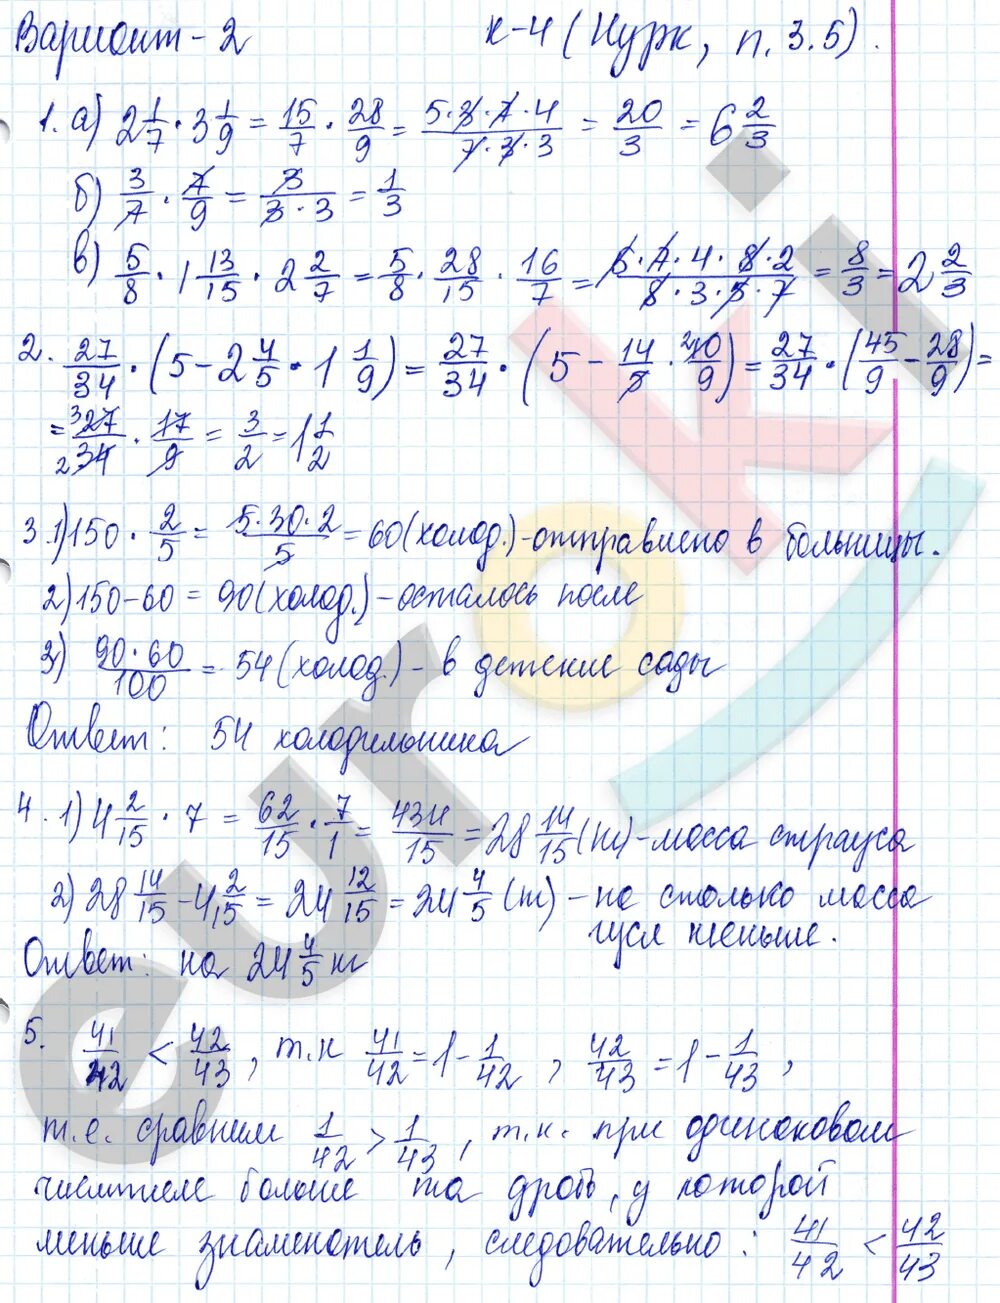 Вариант-2 К-4 (Нурк, п. 3.5).
1. а) 2 1/7 · 3 1/9 = 15/7 · 28/9 = 5·3·7·4/7·3·3 = 20/3 = 6 2/3
б) 3/7 · 7/9 = 3/3·3 = 1/3
в) 5/8 · 1 13/15 · 2 2/7 = 5/8 · 28/15 · 16/7 = 5·7·4·8·2/8·3·5·7 = 8/3 = 2 2/3
2. 27/34 · (5 - 2 4/5 · 1 1/9) = 27/34 · (5 - 14/5 · 10/9) = 27/34 · (45/9 - 28/9) =
= 27/34 · 17/9 = 3/2 = 1 1/2
3. 1) 150 · 2/5 = 5·30·2/5 = 60 (холод.) - отправлено в больницы.
2) 150 - 60 = 90 (холод.) - осталось после
3) 90·60/100 = 54 (холод.) - в детские сады
Ответ: 54 холодильника
4. 1) 4 2/15 · 7 = 62/15 · 7/1 = 434/15 = 28 14/15 (кг) - масса страуса
2) 28 14/15 - 4 2/15 = 24 12/15 = 24 4/5 (кг) - на столько масса
гуся меньше.
Ответ: на 24 4/5 кг
5. 41/42 < 42/43, т.к 41/42 = 1 - 1/42, 42/43 = 1 - 1/43,
т.е. сравним 1/42 > 1/43, т.к. при одинаковом
числителе больше та дробь, у которой
меньше знаменатель, следовательно: 41/42 < 42/43
euroki